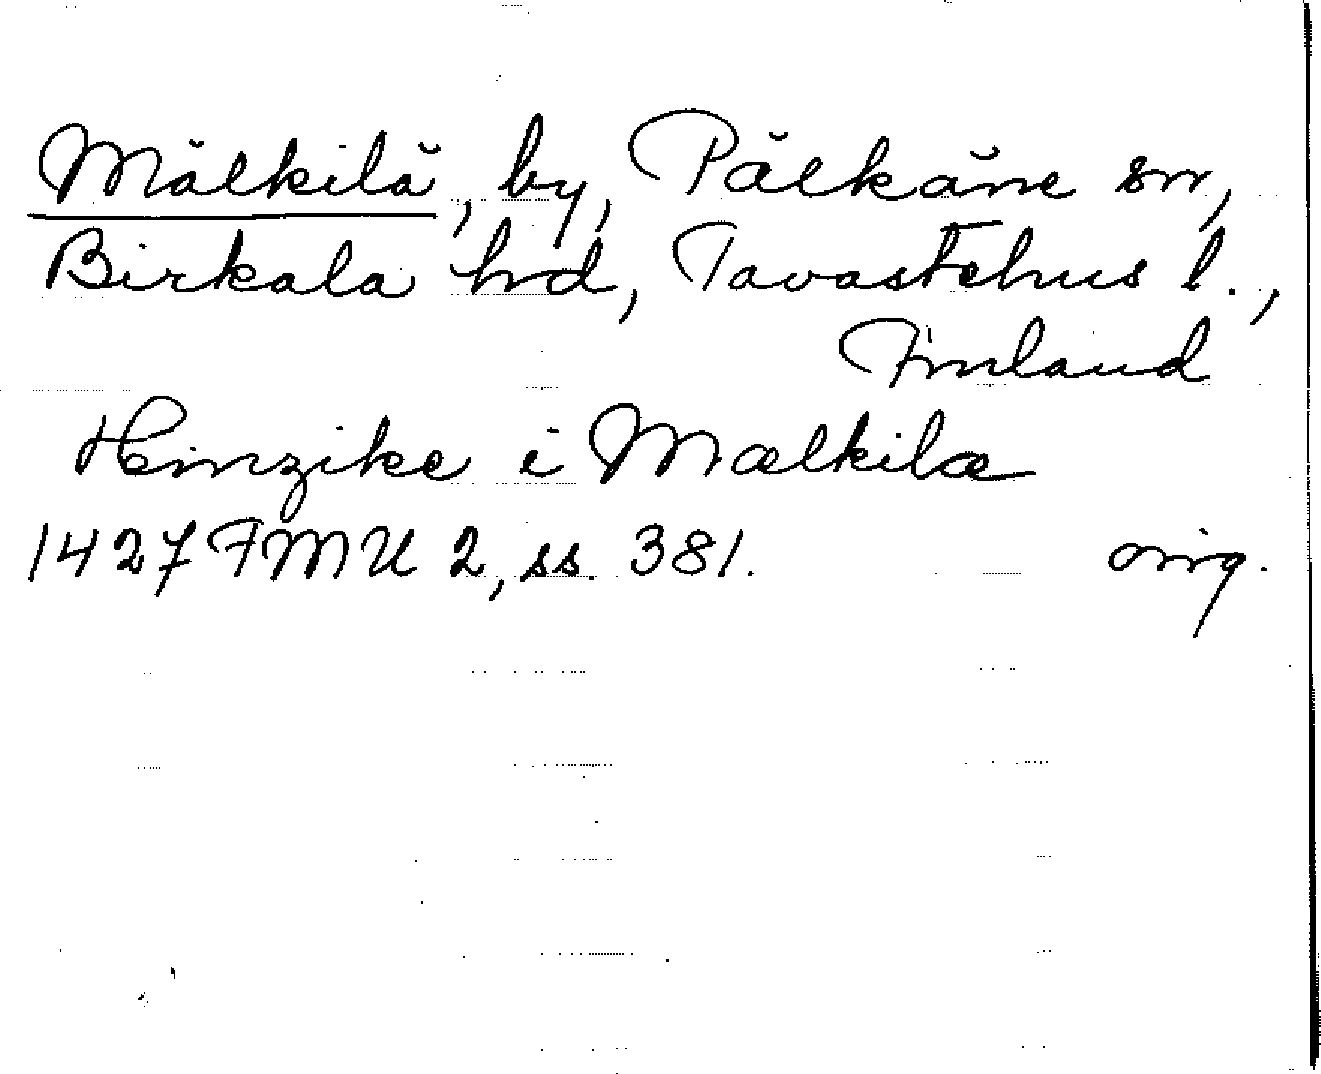 Mälkilä, by, Pälkäne sn,
Birkala hd, Tavastehus l.,
Finland
Hinzike i Mælkilæ
1427 FMU 2, ss. 381. orig.